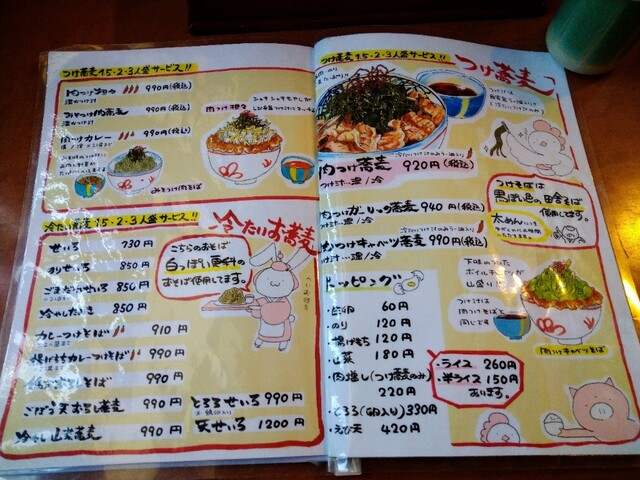 つけ蕎麦1.5・2・3人盛サービス!!
990円(税込)
990円(税込)
肉つけカレー 990円(税込)
みそつけ肉そば
冷たいお蕎麦1.5・2・3人盛サービス!!
冷たいお蕎麦
せいろ 730円
のりせいろ 850円
ごまだれせいろ 850円
冷やしたぬき 850円
カレーつけそば 910円
揚げもちカレーつけそば 990円
990円
ごぼう天おろし蕎麦 990円
冷やし山菜蕎麦 990円
こちらのおそば
白っぽい更科の
おそば使用してます。
とろろせいろ 990円
天せいろ 1200円
つけ蕎麦1.5・2・3人盛サービス!!
つけ蕎麦
肉つけ蕎麦 920円(税込)
つけ汁…温/冷
肉つけガーリック蕎麦 940円(税込)
つけ汁…温/冷
肉つけキャベツ蕎麦 990円(税込)
つけ汁…温/冷
つけそばは
黒っぽい色の田舎そば
使用してます。
太めん
トッピング
・生卵 60円
・のり 120円
・揚げもち 120円
・山菜 180円
・肉増し(つけ蕎麦のみ)
220円
・とろろ(卵入り)330円
・えび天 420円
下味のついた
ボイルキャベツが
山盛り!!
つけ汁は
肉つけそばと
同じです
肉つけキャベツそば
・ライス 260円
・半ライス 150円
あります。